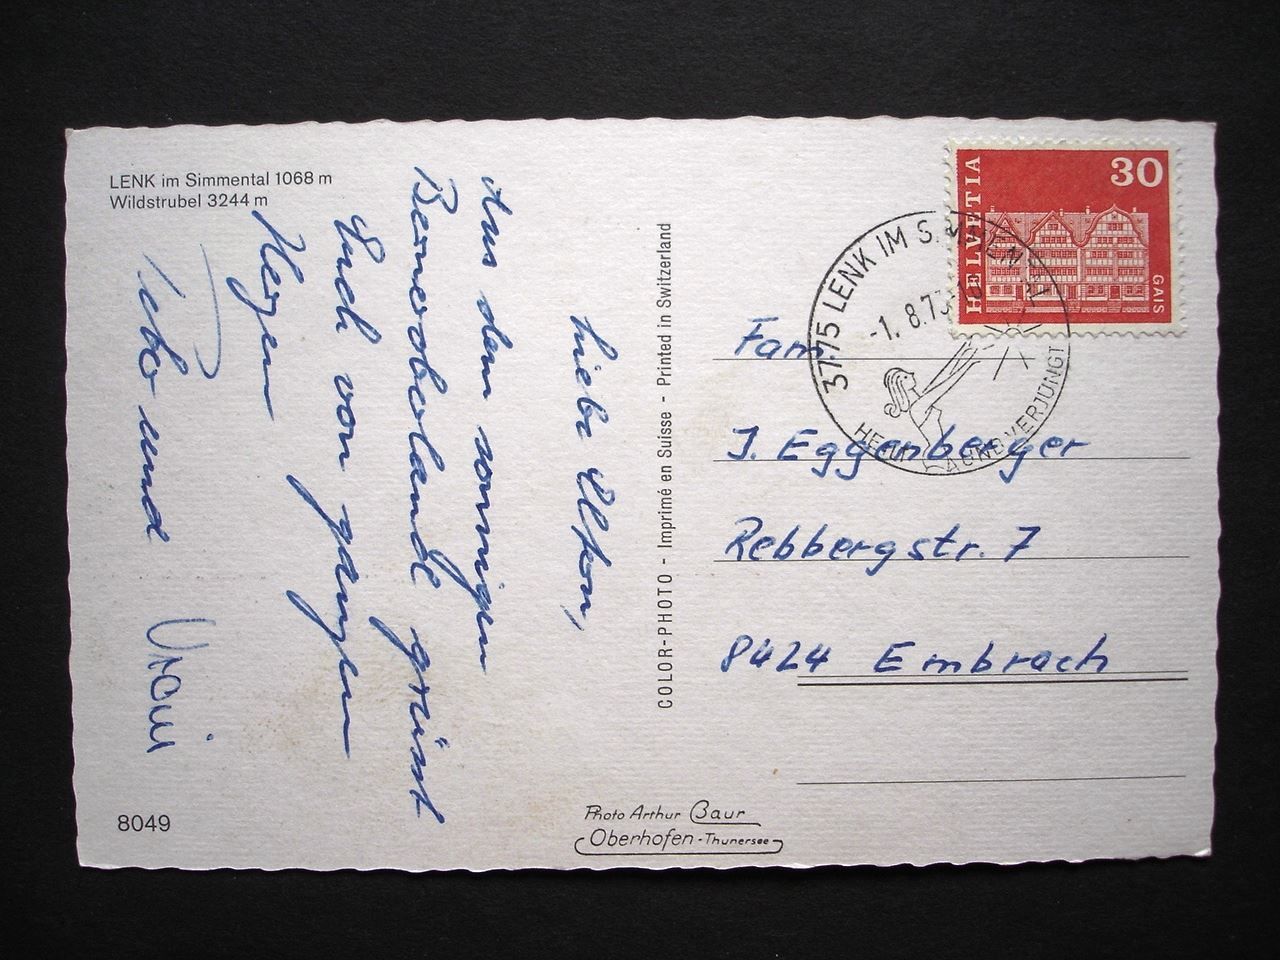 LENK im Simmental 1068 m
Wildstrubel 3244 m
Liebe Eltern,
Aus dem sonnigen
Berneroberland grüsst
Euch von ganzem
Herzen
und
8049
COLOR-PHOTO - Imprimé en Suisse - Printed in Switzerland
Photo Arthur Baur
Oberhofen-Thunersee
HELVETIA
30
GAIS
3775 LENK IM SIMMENTAL
-1. 8.73
HEILT UND VERJÜNGT
Fam.
J. Eggenberger
Rebbergstr. 7
8424 Embrach